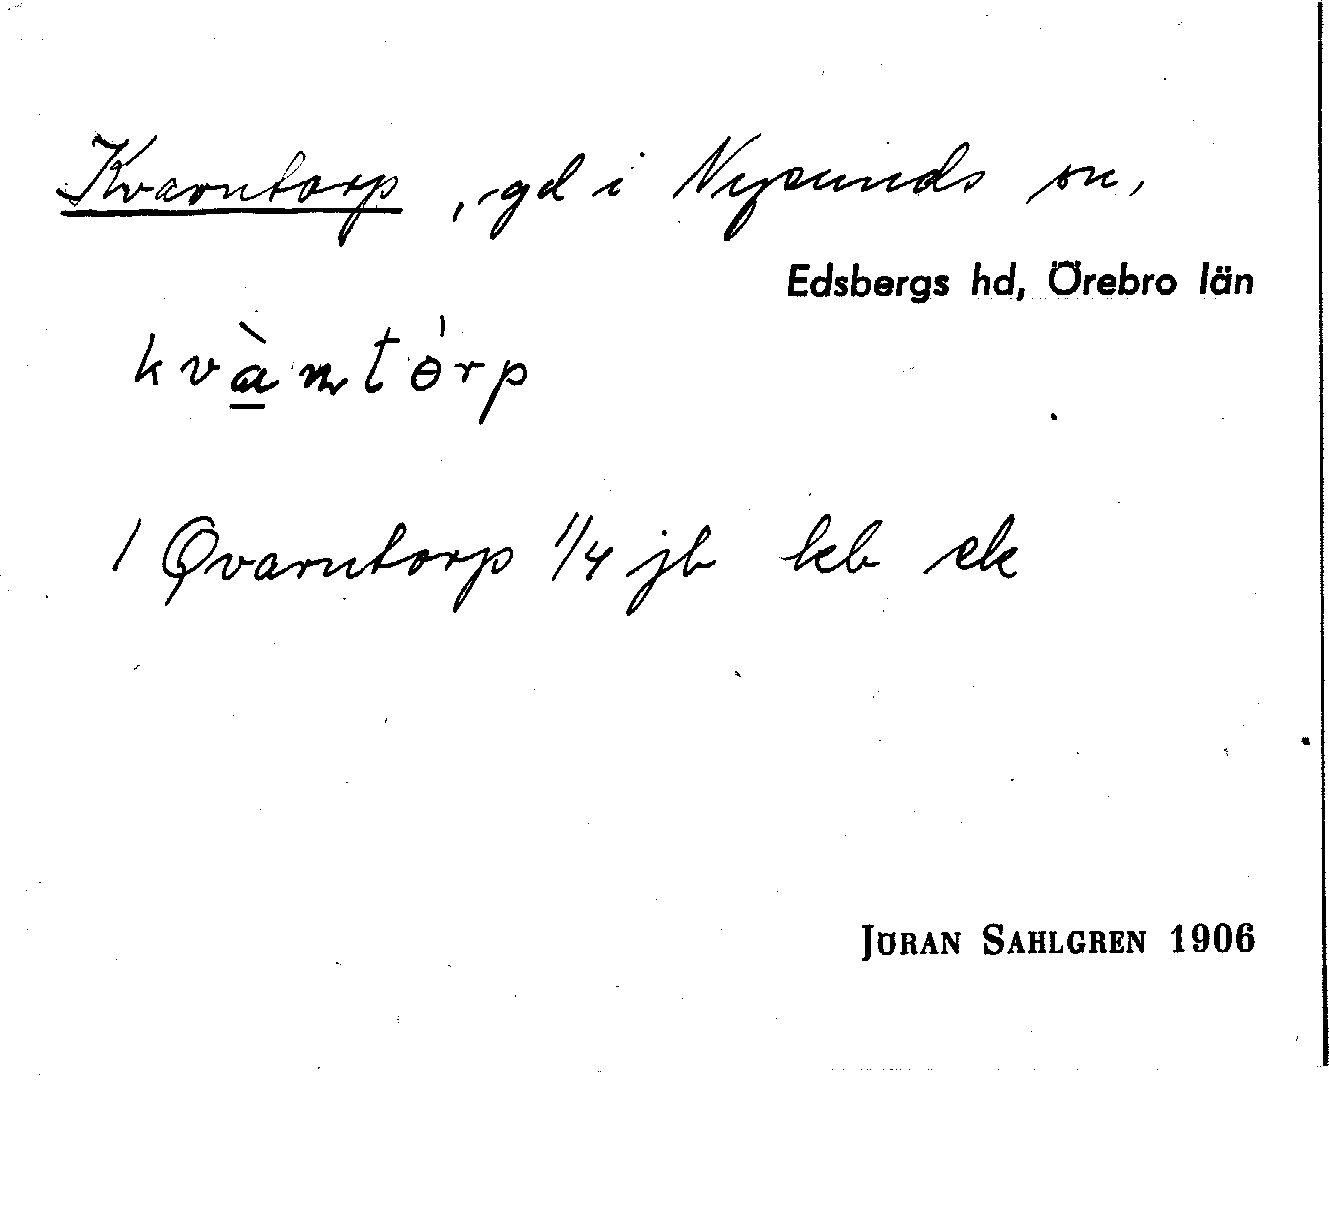 Kvarntorp, gd i Nysunds sn,
Edsbergs hd, Örebro län
kvàntórp
1 Qvarntorp 1/4 jb kb ek
JÖRAN SAHLGREN 1906